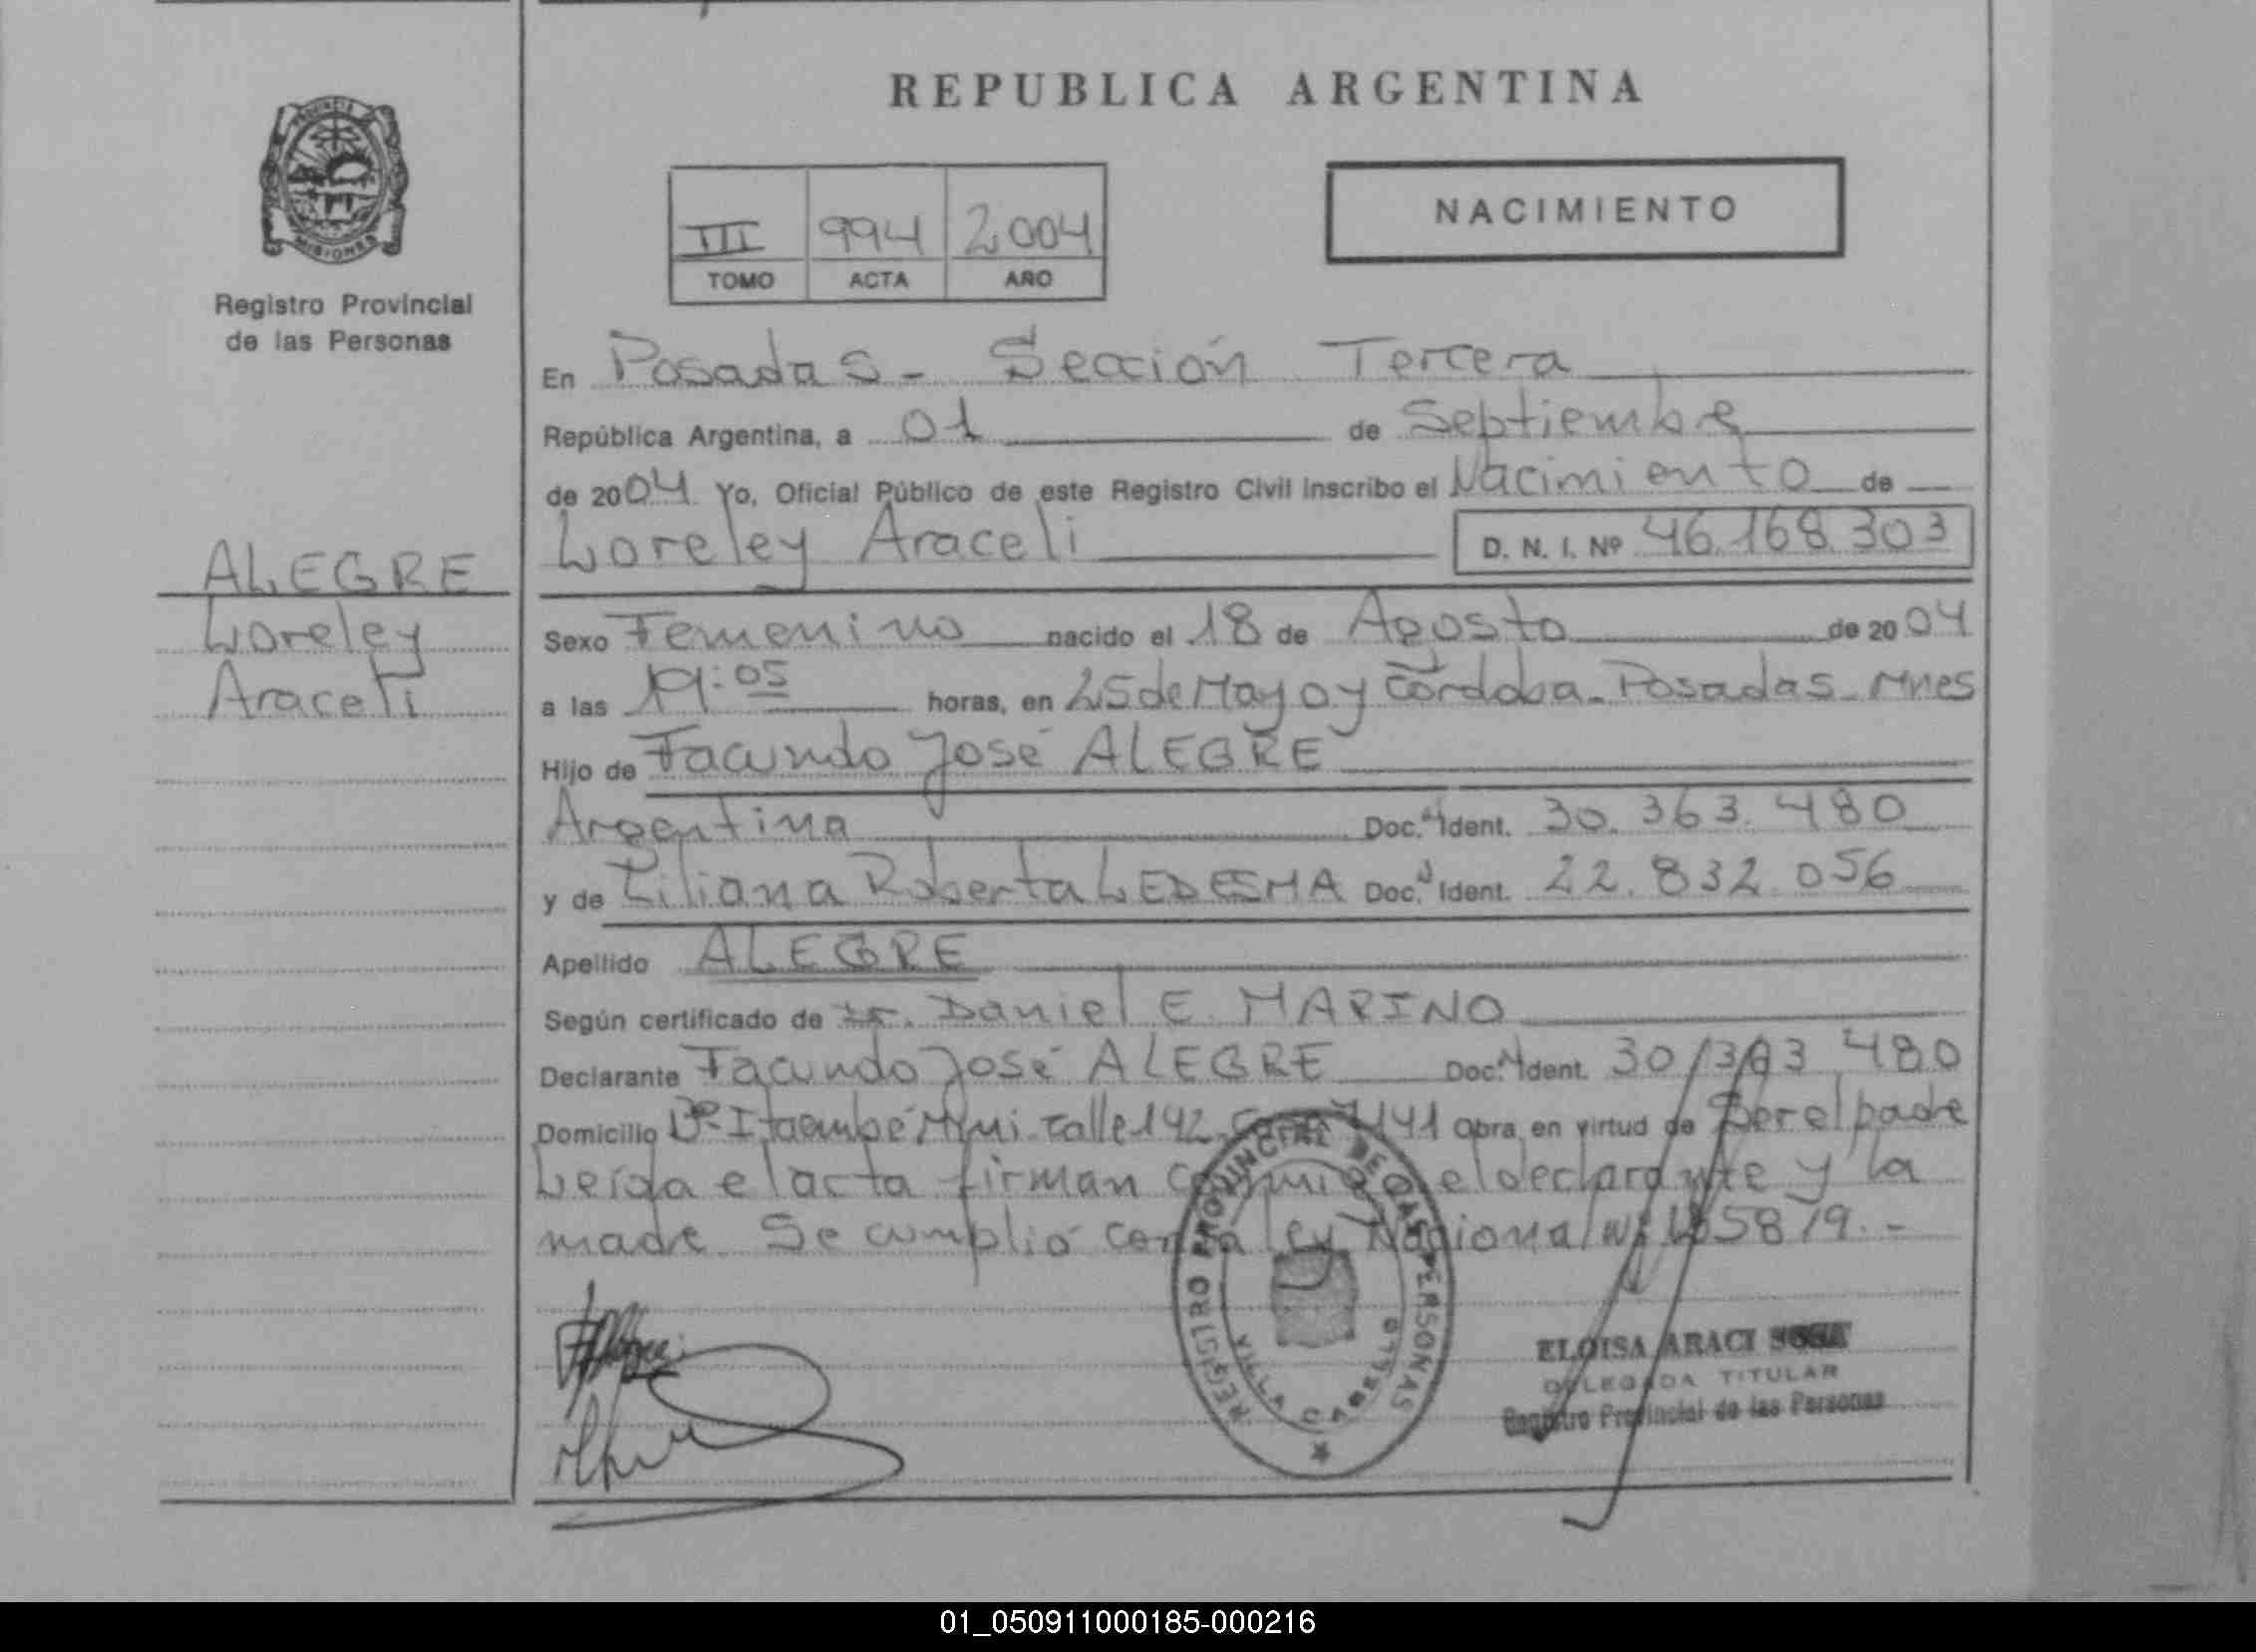 REPUBLICA ARGENTINA
PROVINCIA
MISIONES
Registro Provincial
de las Personas
III 994 2004
TOMO ACTA AÑO
NACIMIENTO
En Posadas - Sección Tercera
República Argentina, a 01 de Septiembre
de 2004 Yo, Oficial Público de este Registro Civil inscribo el Nacimiento de
Loreley Araceli D. N. I. Nº 46.168.303
ALEGRE
Loreley
Araceli
Sexo Femenino nacido el 18 de Agosto de 2004
a las 19:05 horas, en 25 de Mayo y Córdoba - Posadas - Mnes
Hijo de Facundo José ALEGRE
Argentina Doc. Ident. 30.363.480
y de Liliana Roberta LEDESMA Doc. Ident. 22.832.056
Apellido ALEGRE
Según certificado de Dr. Daniel E. MARINO
Declarante Facundo José ALEGRE Doc. Ident. 30.363.480
Domicilio Bº Itaembé Mini calle 142 141 Obra en virtud de Ser el padre
Leída el acta firman conmigo el declarante y la
madre. Se cumplió con la ley Nacional
REGISTRO PROVINCIAL DE LAS PERSONAS
VILLA CABELLO
ELOISA ARACI SOSA
DELEGADA TITULAR
Registro Provincial de las Personas
01_050911000185-000216